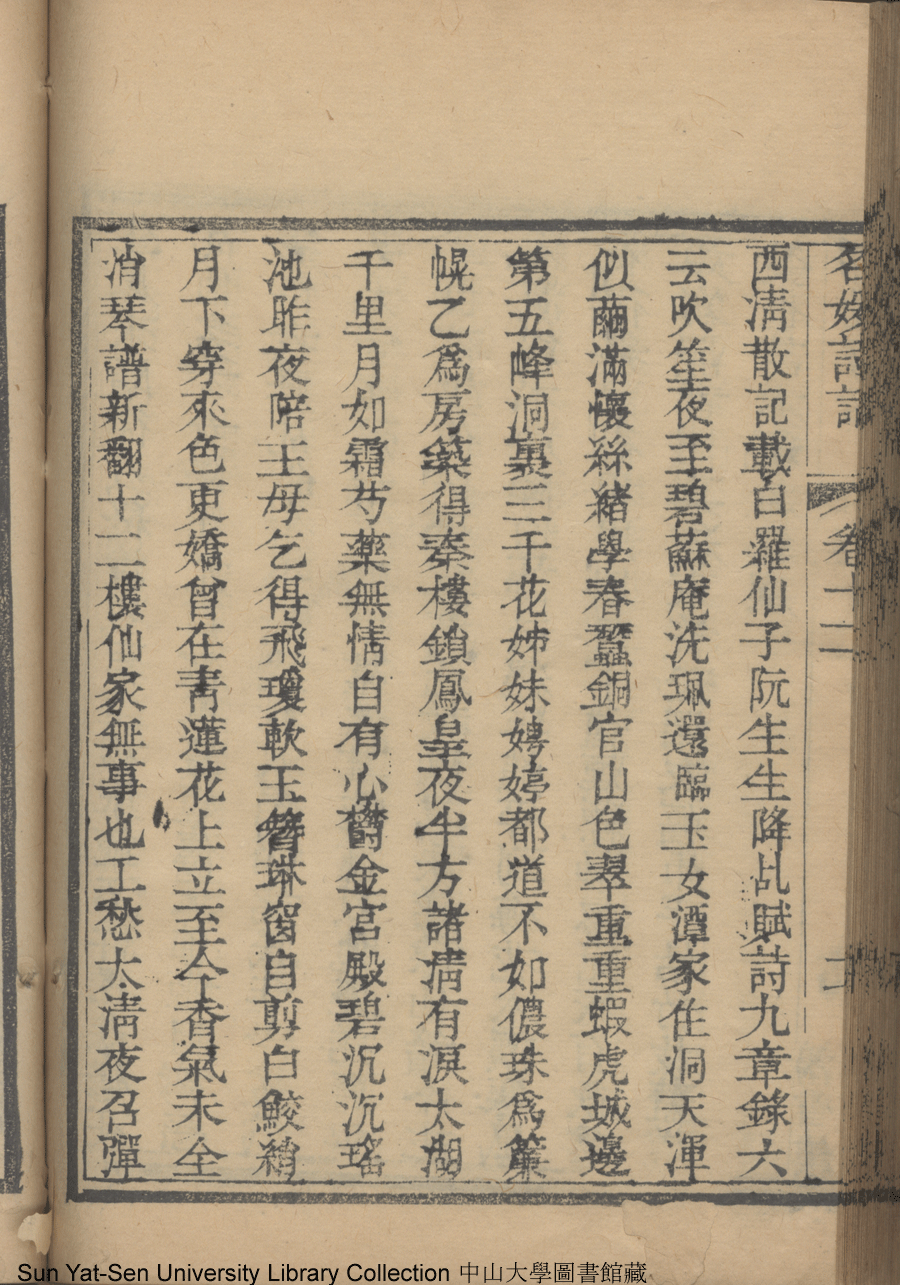 名媛詩話
卷十二
西淸散記載白羅仙子阮生生降乩賦詩九章錄六
云吹笙夜至碧蘇庵洗珮還臨玉女潭家住洞天渾
似繭滿懷絲緒學春蠶銅官山色翠重重蝦虎城邊
第五峰洞裏三千花姊妹娉婷都道不如儂珠爲簾
幌乙爲房築得秦樓鎖鳳皇夜半方諸淸有淚太湖
千里月如霜芍藥無情自有心鬱金宮殿碧沉沉瑤
池昨夜陪王母乞得飛瓊軟玉簪琳窗自剪白鮫綃
月下穿來色更嬌曾在靑蓮花上立至今香氣未全
消琴譜新翻十二樓仙家無事也工愁太淸夜召彈
Sun Yat-Sen University Library Collection 中山大學圖書館藏